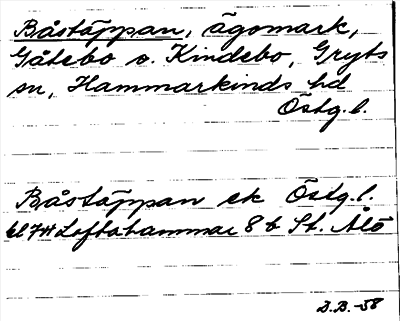 Båstäppan, ägomark,
Gåtebo o. Kindebo, Gryts
sn, Hammarkinds hd
Östg.l.
Båstäppan ek Östg.l.
bl 7H Loftahammar 8 b St. Ålö
D.B. -58